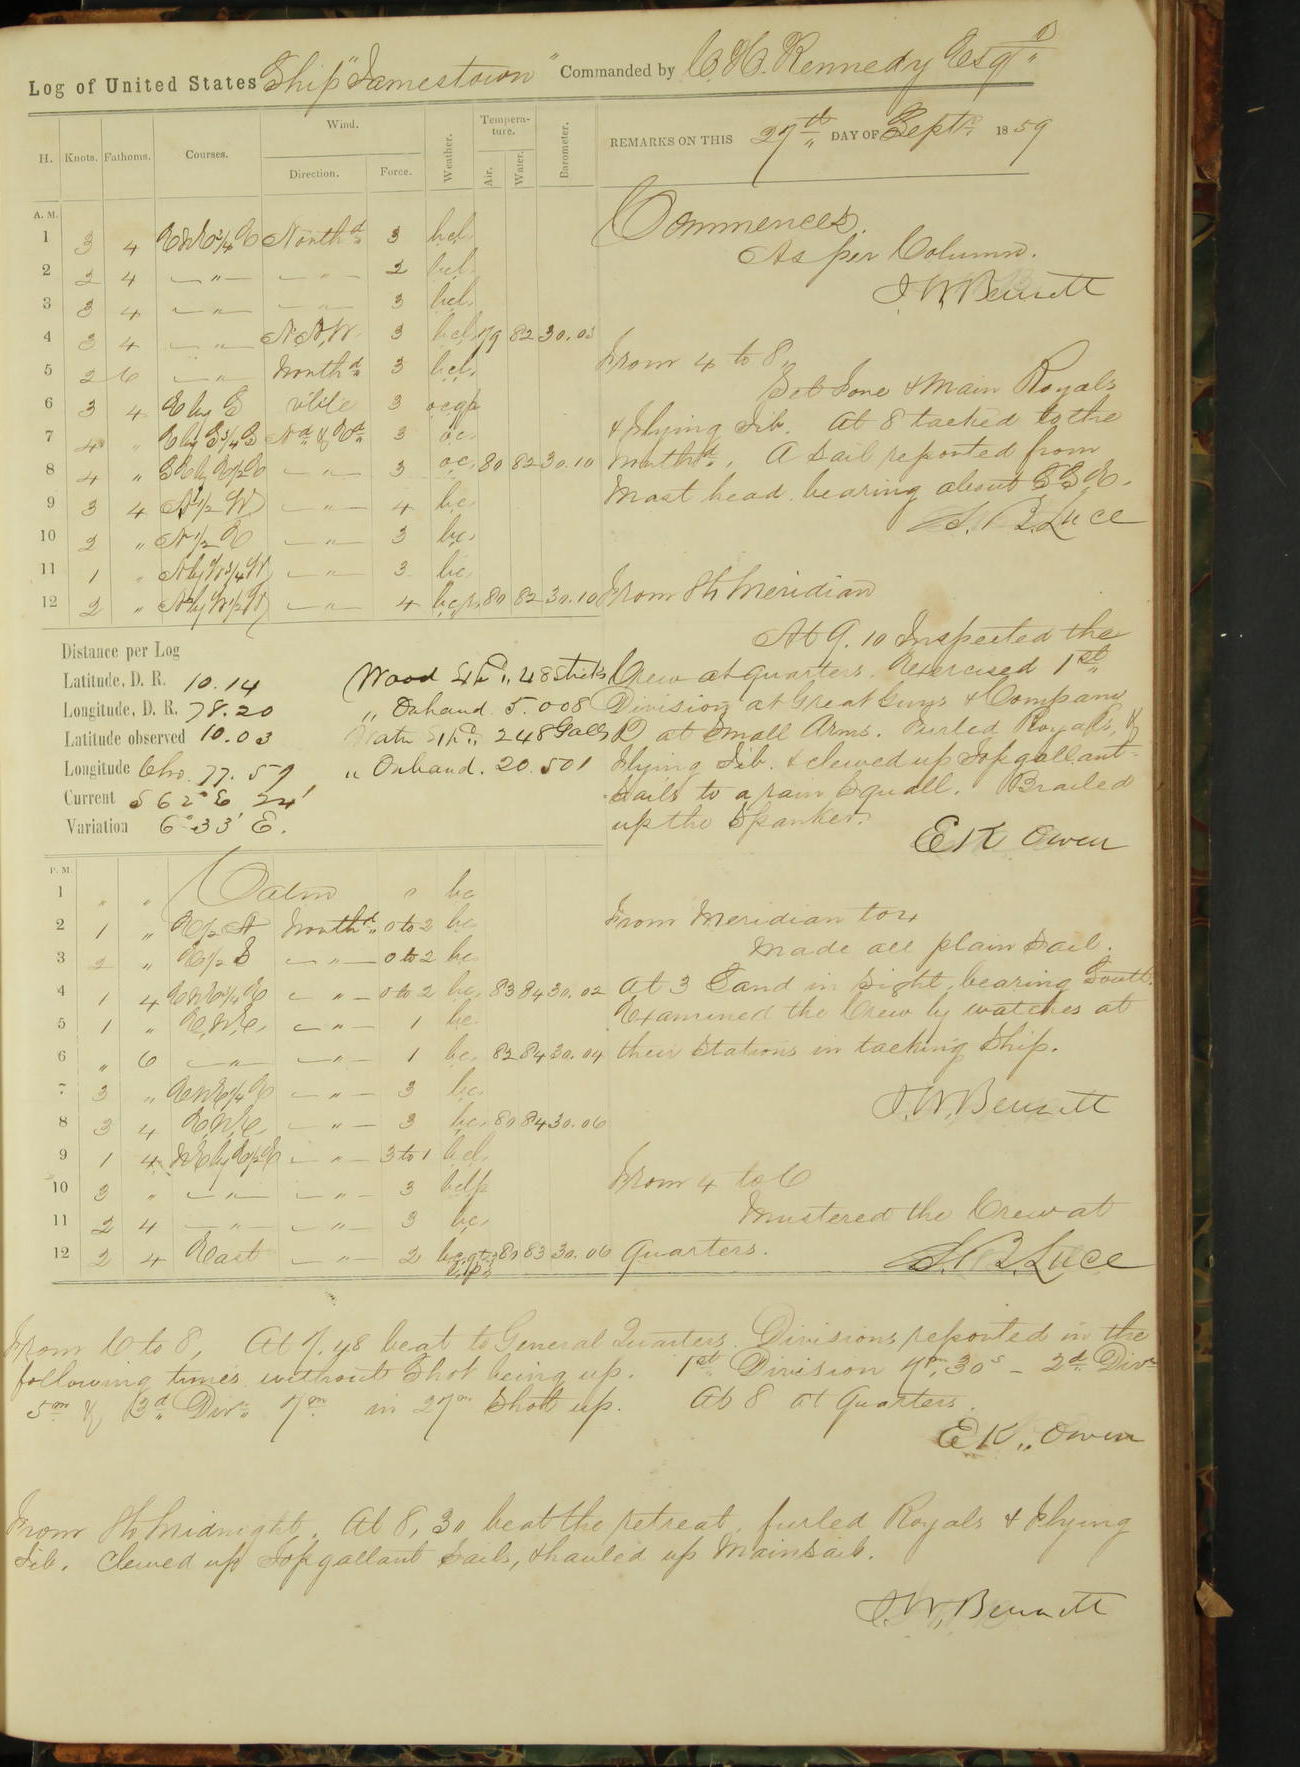 Log of United States Ship "Jamestown" Commanded by C. H. Kennedy Esqr
REMARKS ON THIS 27th DAY OF Septr 1859
H. Knots. Fathoms. Courses. Wind. Direction. Force. Weather. Temperature. Air. Water. Barometer.
A. M.
1 3 4 ENE3/4E Northd 3 bcl
2 2 4 — " — — " — 2 bcl
3 3 4 — " — — " — 3 bcl
4 3 4 — " — N.N.W. 3 bcl 79 82 30.03
5 2 6 — " — Northd 3 bcl
6 3 4 E by S 3 ocqp
7 4 " E by S3/4S Nd & Ed 3 oc
8 4 " SE by E1/2E — " — 3 oc 80 82 30.10
9 3 4 N1/2W — " — 4 bc
10 2 " N1/2E — " — 3 bc
11 1 " N by W3/4W — " — 3 bc
12 2 " N by W1/2W — " — 4 bcp 80 82 30.10
Commences.
As per Column.
J. W. Bennett
From 4 to 8,
Set Fore & Main Royals
& Flying Jib. At 8 tacked to the
Northd. A Sail reported from
Mast head bearing about SSE.
S. B. Luce
From 8 to Meridian
At 9.10 Inspected the
Crew at quarters. Exercised 1st
Division at Great Guns & Company
D at Small Arms. Furled Royals, &
Flying Jib. & clewed up Topgallant-
Sails to a rain Squall. Brailed
up the Spanker.
E K Owen
Distance per Log
Latitude, D. R. 10.14
Longitude, D. R. 78.20
Latitude observed 10.03
Longitude Chro. 77.59
Current S 62° E 24'
Variation 6° 33' E.
Wood 48 Sticks
" Onhand 5.008
248 Galls
" Onhand. 20.501
P. M.
1 " " Calm 0 bc
2 1 " E1/2N Northd 0 to 2 bc
3 2 " E1/2S — " — 0 to 2 bc
4 1 4 ENE1/4E — " — 0 to 2 bc 83 84 30.02
5 1 " E.N.E. — " — 1 bc
6 " 6 — " — — " — 1 bc 82 84 30.04
7 3 " ENE1/4E — " — 3 bc
8 3 4 E.N.E. — " — 3 bc 80 84 30.06
9 1 4 NE by E1/2E — " — 3 to 1 bcl
10 3 " — " — — " — 3 bclp
11 2 4 — " — — " — 3 bc
12 2 4 East — " — 2 80 83 30.06
From Meridian to 4
Made all plain Sail.
At 3 Land in sight, bearing South.
Examined the Crew by watches at
their Stations in tacking Ship.
J. W. Bennett
From 4 to 6
Mustered the Crew at
Quarters.
S. B. Luce
From 6 to 8, At 7.48 beat to General Quarters. Divisions reported in the
following times without Shot being up. 1st Division 7m. 30s – 2d Divn
5m & 3d Divn 7m in 27m Shott up. At 8 at Quarters.
E K,, Owen
From 8 to Midnight. At 8,30 beat the retreat, furled Royals & Flying
Jib. Clewed up Topgallant Sails, & hauled up Mainsail.
J. W. Bennett